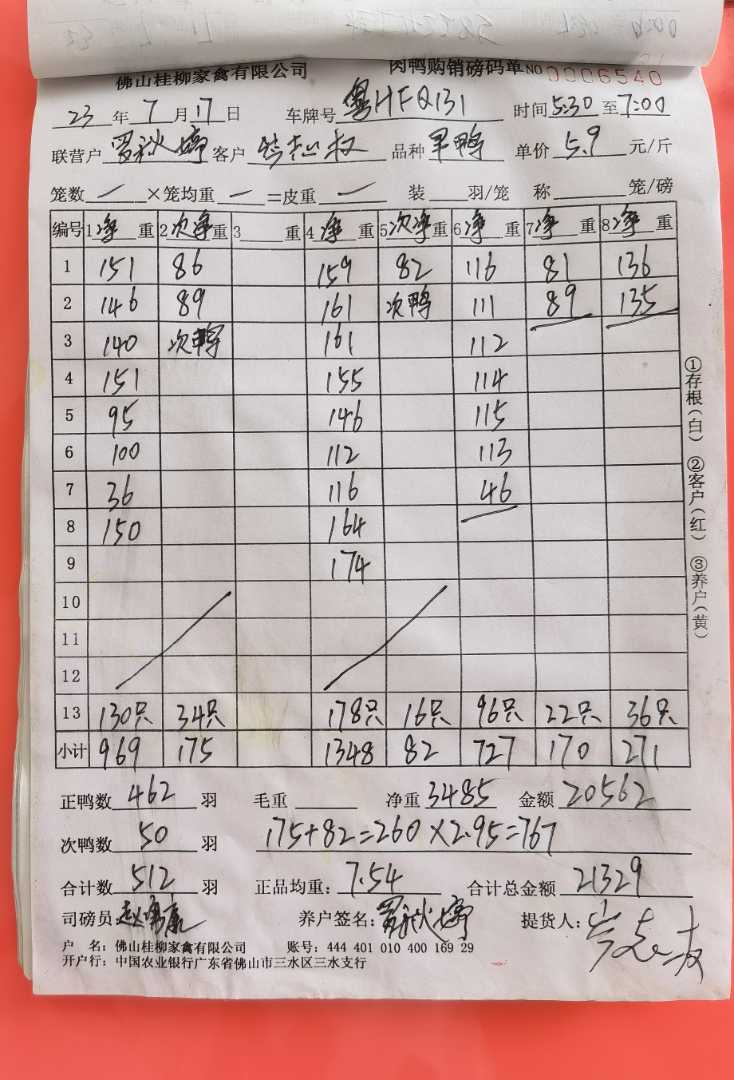 佛山桂柳家禽有限公司 肉鸭购销磅码单 NO 0006540
23 年 7 月 17 日 车牌号 粤HFQ131 时间 5:30 至 7:00
联营户 罗秋婷 客户 品种 半鸭 单价 5.9 元/斤
笼数 ／ ×笼均重 ／ =皮重 ／ 装 羽/笼 称 笼/磅
编号 1 净 重 2 次净 重 3 重 4 净 重 5 次净 重 6 净 重 7 净 重 8 净 重
1 151 86 159 82 116 81 136
2 146 89 161 次鸭 111 89 135
3 140 次鸭 161 112
4 151 155 114
5 95 146 115
6 100 112 113
7 36 116 46
8 150 164
9 174
10
11
12
13 130只 34只 178只 16只 96只 22只 36只
小计 969 175 1348 82 727 170 271
正鸭数 462 羽 毛重 净重 3485 金额 20562
次鸭数 50 羽 175+82=260×2.95=767
合计数 512 羽 正品均重: 7.54 合计总金额 21329
司磅员 养户签名: 罗秋婷 提货人:
户 名: 佛山桂柳家禽有限公司 账号: 444 401 010 400 169 29
开户行: 中国农业银行广东省佛山市三水区三水支行
①存根(白) ②客户(红) ③养户(黄)